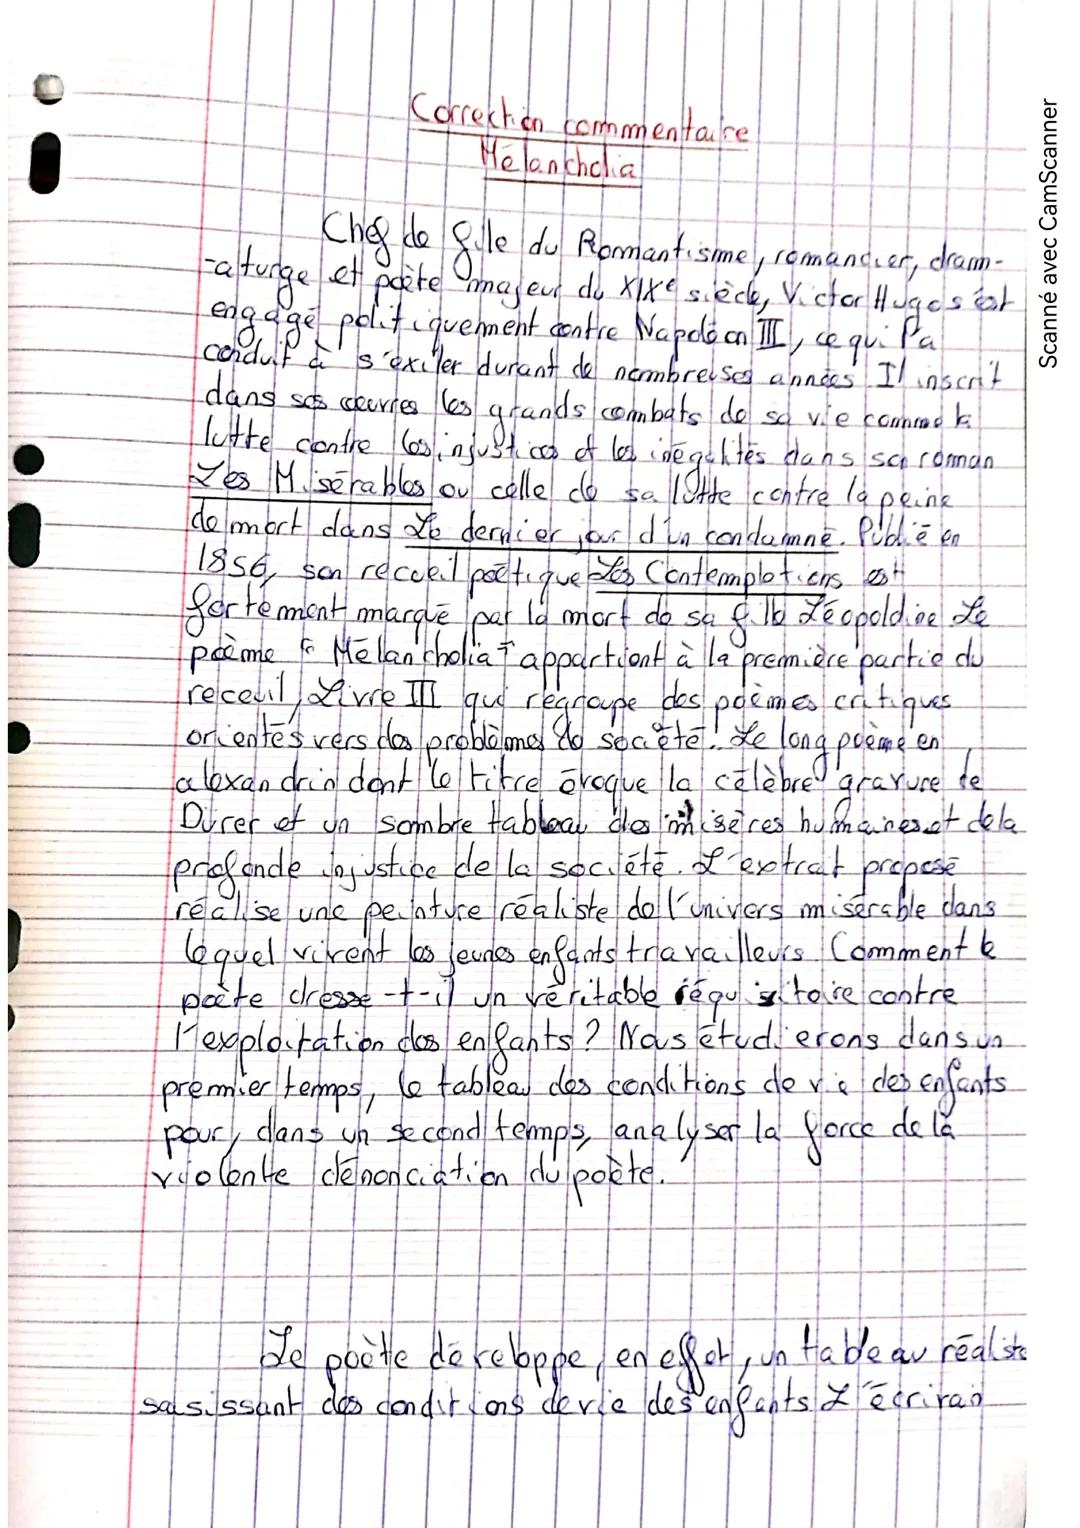 Correction commentaire
Mélancholia
Chef de file du Romantisme, romancier, dram-
-aturge et poète majeur du XIXe siècle, Victor Hugo s'est
engagé politiquement contre Napoléon III, ce qui l'a
conduit à s'exiler durant de nombreuses années Il inscrit
dans ses œuvres les grands combats de sa vie comme la
lutte contre les injustices et les inégalités dans son roman
Les Misérables ou celle de sa lutte contre la peine
de mort dans Le dernier jour d'un condamné. Publié en
1856, son recueil poétique Les Contemplations est
fortement marqué par la mort de sa fille Léopoldine Le
poème " Mélancholia " appartient à la première partie du
receuil, Livre III qui regroupe des poèmes critiques
orientés vers des problèmes de société. Le long poème en
alexandrin dont le titre évoque la célèbre gravure de
Dürer et un sombre tableau des misères humaines et de la
profonde injustice de la société. L'extrait proposé
réalise une peinture réaliste de l'univers misérable dans
lequel vivent les jeunes enfants travailleurs Comment le
poète dresse-t-il un véritable réquisitoire contre
l'exploitation des enfants ? Nous étudierons dans un
premier temps, le tableau des conditions de vie des enfants
pour, dans un second temps, analyser la force de la
violente dénonciation du poète.
Le poète développe, en effet, un tableau réaliste
saisissant des conditions de vie des enfants L'écrivain
Scanné avec CamScanner